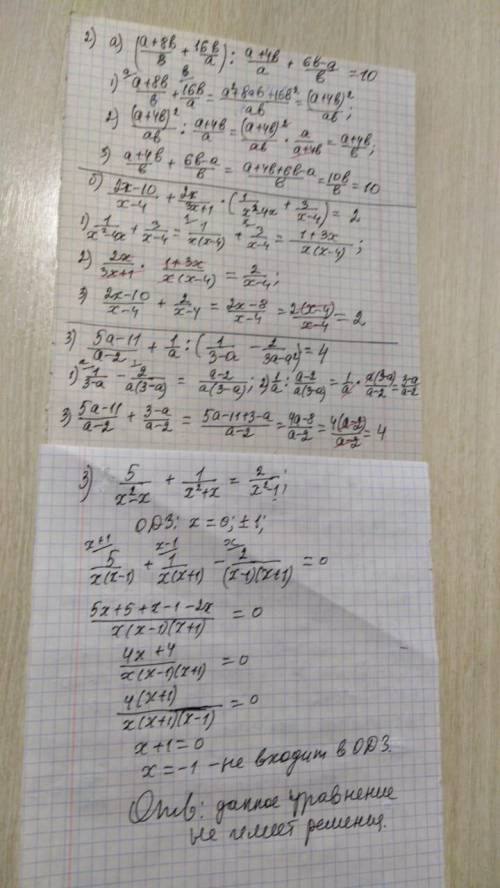 2) а) ((a+8b)/b + (16b)/a) : (a+4b)/a + (6b-a)/b = 10
1) (a+8b)/b + (16b)/a = (a²+8ab+16b²)/(ab) = (a+4b)²/(ab);
2) (a+4b)²/(ab) : (a+4b)/a = (a+4b)²/(ab) · a/(a+4b) = (a+4b)/b;
3) (a+4b)/b + (6b-a)/b = (a+4b+6b-a)/b = 10b/b = 10
б) (2x-10)/(x-4) + 2x/(3x+1) · (1/(x²-4x) + 3/(x-4)) = 2
1) 1/(x²-4x) + 3/(x-4) = 1/(x(x-4)) + 3/(x-4) = (1+3x)/(x(x-4));
2) 2x/(3x+1) · (1+3x)/(x(x-4)) = 2/(x-4);
3) (2x-10)/(x-4) + 2/(x-4) = (2x-8)/(x-4) = 2(x-4)/(x-4) = 2
3) (5a-11)/(a-2) + 1/a : (1/(3-a) - 2/(3a-a²)) = 4
1) 1/(3-a) - 2/(a(3-a)) = (a-2)/(a(3-a)); 2) 1/a : (a-2)/(a(3-a)) = 1/a · a(3-a)/(a-2) = (3-a)/(a-2)
3) (5a-11)/(a-2) + (3-a)/(a-2) = (5a-11+3-a)/(a-2) = (4a-8)/(a-2) = 4(a-2)/(a-2) = 4
3) 5/(x²-x) + 1/(x²+x) = 2/(x²-1);
ОДЗ: x = 0; ±1;
x+1 x-1 x
5/(x(x-1)) + 1/(x(x+1)) - 2/((x-1)(x+1)) = 0
(5x+5+x-1-2x)/(x(x-1)(x+1)) = 0
(4x+4)/(x(x-1)(x+1)) = 0
4(x+1)/(x(x+1)(x-1)) = 0
x+1 = 0
x = -1 - не входит в ОДЗ.
Отв: данное уравнение
не имеет решения.